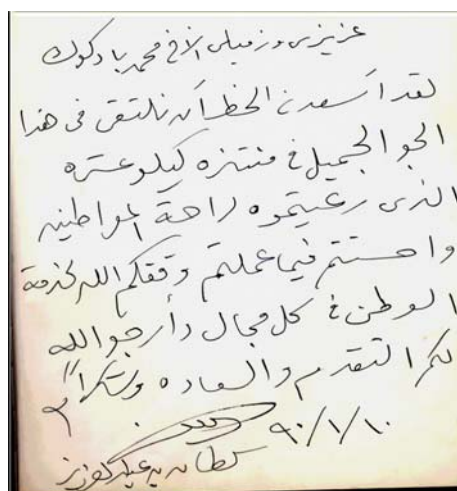 عزيزى وزميلى الاخ محمد باركوك
لقد أسعدنى الحظ أن نلتقى فى هذا
الجو الجميل فى منتزه كيلو عشره
الذى رعيتموه لراحة المواطنين
واحسنتم فيما عملتم وفقكم الله لخدمة
الوطن فى كل مجال وأرجو الله
لكم التقدم والسعاده وشكراً
٩٠/١/١٠
سلطان بن عبدالعزيز